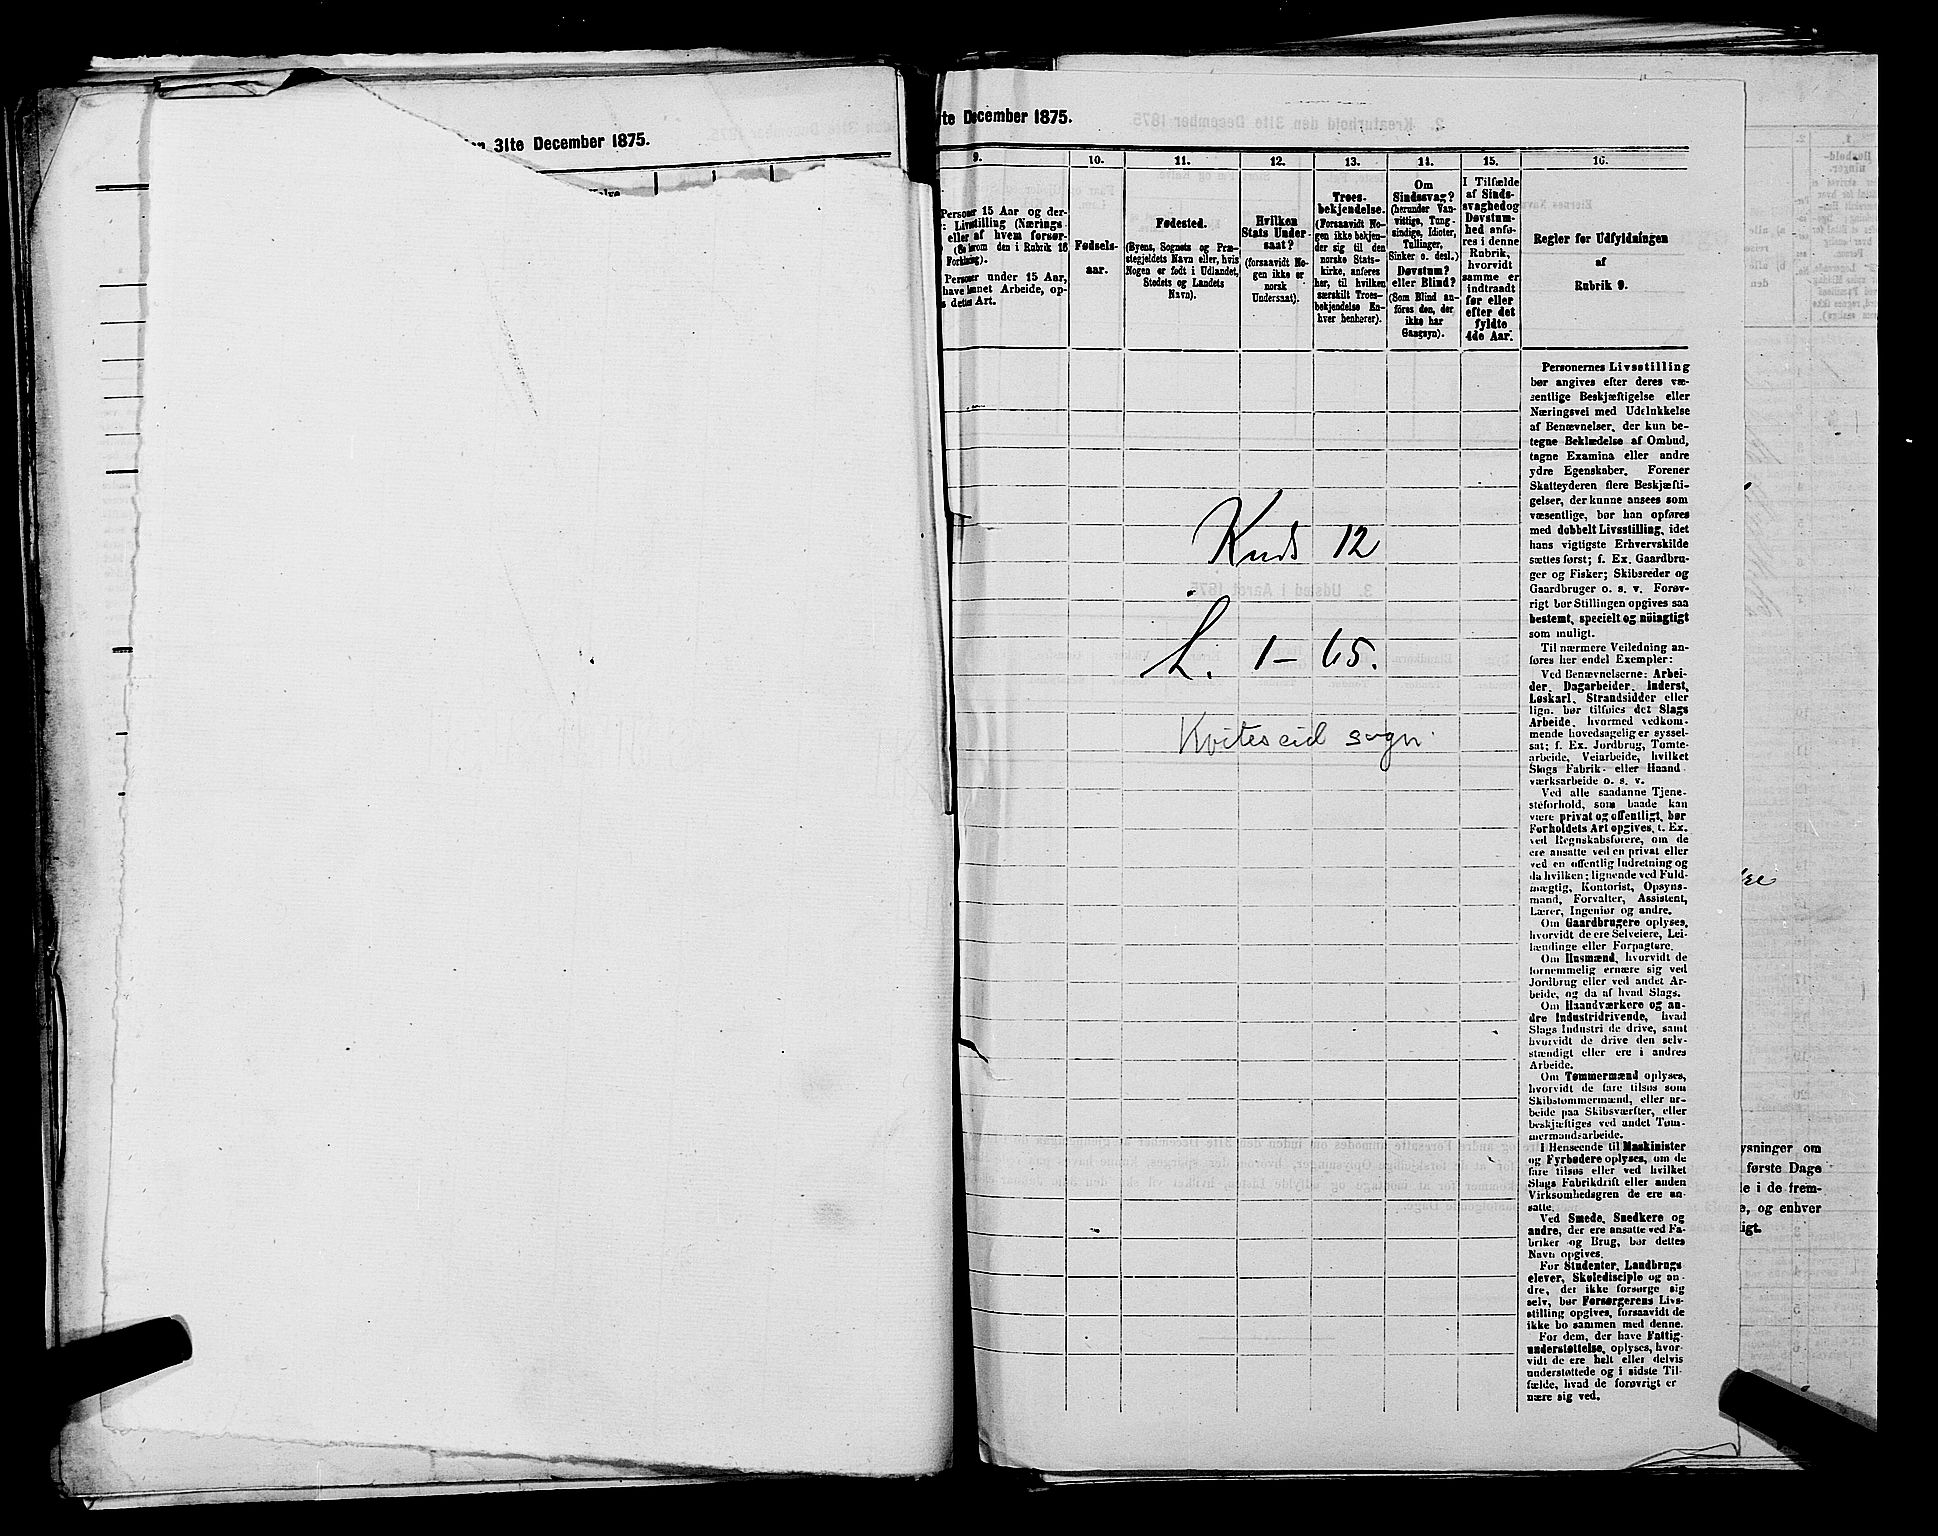 31te December 1875.
te December 1875.
9.
10.
11.
12.
13.
14.
15.
16.
Personer 15 Aar og der-
: Livsstilling (Nærings-
eller af hvem forsør-
(Se herom den i Rubrik 16
Forklaring).
Personer under 15 Aar,
have lønnet Arbeide, op-
s dettes Art.
Fødsels-
aar.
Fødested.
(Byens, Sognets og Præ-
stegjeldets Navn eller, hvis
Nogen er født i Udlandet,
Stedets og Landets
Navn).
Hvilken
Stats Under-
saat?
(forsaavidt No-
gen ikke er
norsk
Undersaat).
Troes-
bekjendelse.
(Forsaavidt No-
gen ikke bekjen-
der sig til den
norske Stats-
kirke, anføres
her, til hvilken
særskilt Troes-
bekjendelse En-
hver henhører).
Om
Sindssvag?
(herunder Van-
vittige, Tung-
sindige, Idioter,
Tullinger,
Sinker o. desl.)
Døvstum?
eller Blind?
(Som Blind an-
føres den, der
ikke har
Gangsyn).
I Tilfælde
af Sinds-
svaghed og
Døvstum-
hed anfø-
res i denne
Rubrik,
hvorvidt
samme er
indtraadt
før eller
efter det
fyldte
4de Aar.
Regler for Udfyldningen
af
Rubrik 9.
Personernes Livsstilling
bør angives efter deres væ-
sentlige Beskjæftigelse eller
Næringsvei med Udelukkelse
af Benævnelser, der kun be-
tegne Beklædelse af Ombud,
tagne Examina eller andre
ydre Egenskaber. Forener
Skatteyderen flere Beskjæfti-
gelser, der kunne ansees som
væsentlige, bør han opføres
med dobbelt Livsstilling, idet
hans vigtigste Erhvervskilde
sættes først; f. Ex. Gaardbru-
ger og Fisker; Skibsreder og
Gaardbruger o. s. v. Forøv-
rigt bør Stillingen opgives saa
bestemt, specielt og nøiagtigt
som muligt.
Til nærmere Veiledning an-
føres her endel Exempler:
Ved Benævnelserne: Arbei-
der, Dagarbeider, Inderst,
Løskarl, Strandsidder eller
lign. bør tilføies det Slags
Arbeide, hvormed vedkom-
mende hovedsagelig er syssel-
sat; f. Ex. Jordbrug, Tomte-
arbeide, Veiarbeide, hvilket
Slags Fabrik- eller Haand-
værksarbeide o. s. v.
Ved alle saadanne Tjene-
steforhold, som baade kan
være privat og offentligt, bør
Forholdets Art opgives, t. Ex.
ved Regnskabsførere, om de
ere ansatte ved en privat eller
ved en offentlig Indretning og
da hvilken; lignende ved Fuld-
mægtig, Kontorist, Opsyns-
mand, Forvalter, Assistent,
Lærer, Ingeniør og andre.
Om Gaardbrugere oplyses,
hvorvidt de ere Selveiere, Lei-
lændinge eller Forpagtere.
Om Husmænd, hvorvidt de
fornemmelig ernære sig ved
Jordbrug eller ved andet Ar-
beide, og da af hvad Slags.
Om Haandværkere og an-
dre Industridrivende, hvad
Slags Industri de drive, samt
hvorvidt de drive den selv-
stændigt eller ere i andres
Arbeide.
Om Tømmermænd oplyses,
hvorvidt de fare tilsøs som
Skibstømmermænd, eller ar-
beide paa Skibsværfter, eller
beskjæftiges ved andet Tøm-
mermandsarbeide.
I Henseende til Maskinister
og Fyrbødere oplyses, om de
fare tilsøs eller ved hvilket
Slags Fabrikdrift eller anden
Virksomhedsgren de ere an-
satte.
Ved Smede, Snedkere og
andre, der ere ansatte ved Fa-
briker og Brug, bør dettes
Navn opgives.
For Studenter, Landbrugs-
elever, Skoledisciple og an-
dre, der ikke forsørge sig
selv, bør Forsørgerens Livs-
stilling opgives, forsaavidt de
ikke bo sammen med denne.
For dem, der have Fattig-
understøttelse, oplyses, hvor-
vidt de ere helt eller delvis
understøttede og i sidste Til-
fælde, hvad de forøvrigt er-
nære sig ved.
Knds 12
L. 1 - 65.
Kviteseid sogn.
ysninger om
første Dage
le i de frem-
e, og enhver
igt.